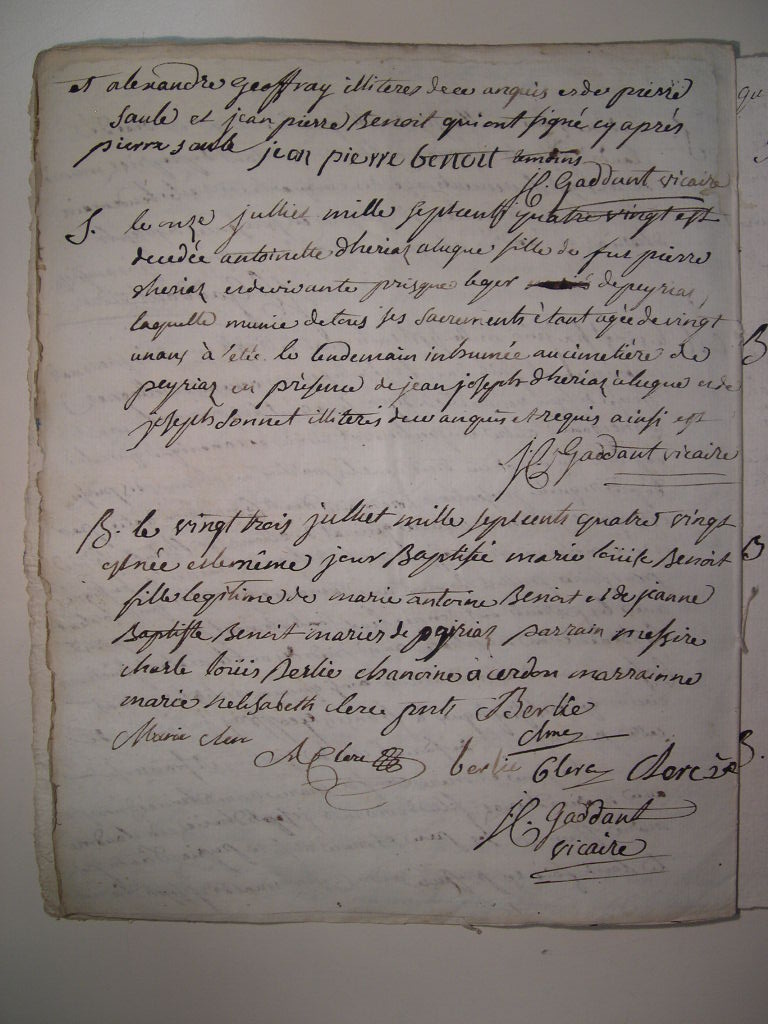 et alexandre Geoffray illiteres de ce anquis et de pierre
Saule et jean pierre Benoit qui ont signé cy aprés
pierre Saule jean pierre benoit temoins
Gaddant vicaire
S. le onze julliet mille septcents quatre vingt est
decedée antoinette dheriaz aluque fille de fut pierre
dheriaz et de vivante leger de peyriaz
laquelle munie de tous ses Sacrements étant agée de vingt
un ans à été le lendemain inhumée au cimetière de
peyriaz en présence de jean joseph dheriaz aluque et de
joseph Sonnet illiterés de ce anquis et requis ainsi est
Gaddant vicaire
B. le vingt trois julliet mille septcents quatre vingt
est née et le même jour Baptisée marie loüise Benoit
fille legitime de marie antoine Benoit et de jeanne
Baptiste Benoit mariés de peyriaz parrain messire
charle loüis Berlie chanoine à cerdon marrainne
marie helisabeth clerc pnts Berlie
chne
Marie clerc M Clerc berlie Clerc Clerc
Gaddant
vicaire
B
B
B.